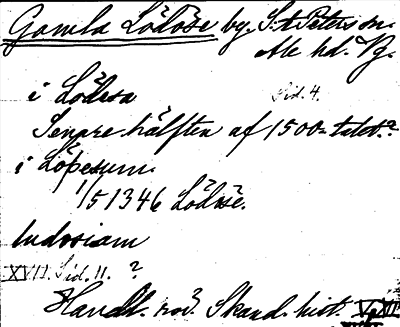 Gamla Lödöse by. S:t Peters sn.
Ale hd. Vg.
i Lödesa Sid. 4.
Senare hälften af 1500-talet?
i Löpesum
1/5 1346 Lödese.
ludosiam
XVII. Sid. 11. ?
Handl. rör. Skand. hist.